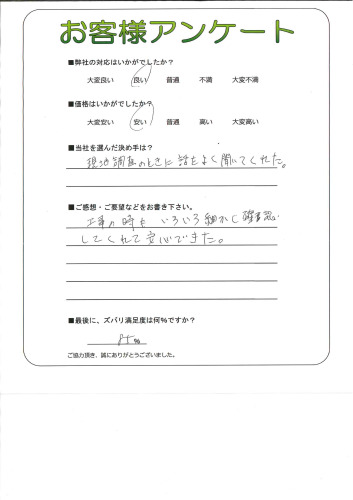 お客様アンケート
■弊社の対応はいかがでしたか？
大変良い 良い 普通 不満 大変不満
■価格はいかがでしたか？
大変安い 安い 普通 高い 大変高い
■当社を選んだ決め手は？
現地調査のときに話をよく聞いてくれた。
■ご感想・ご要望などをお書き下さい。
工事の時も いろいろ細かく確認
してくれて安心できた。
■最後に、ズバリ満足度は何％ですか？
85％
ご協力頂き、誠にありがとうございました。